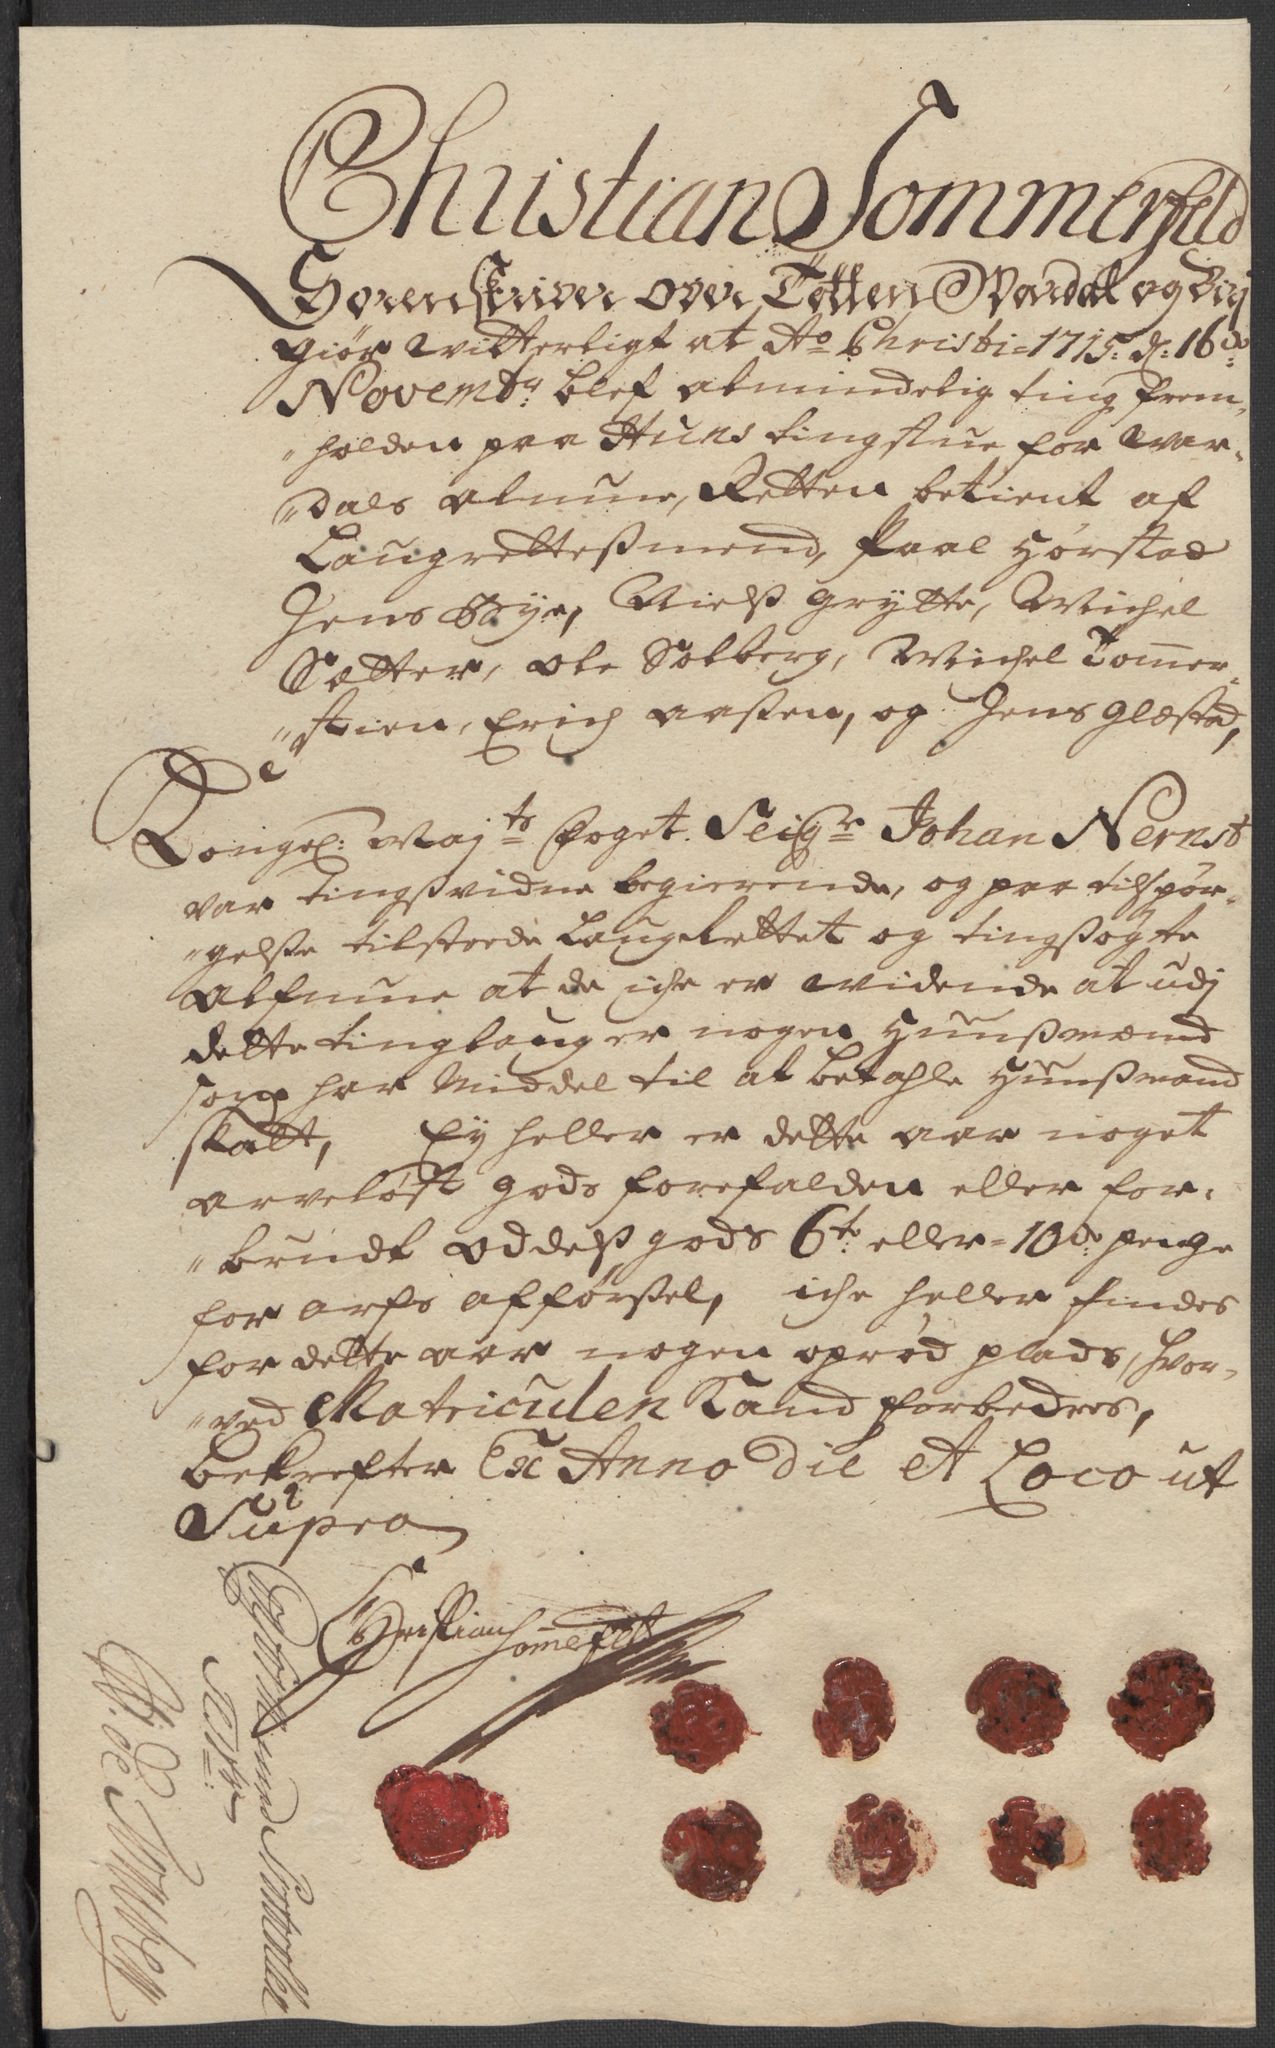 Christian Sommerfeld
Sorenskriver over Totten Wardal og Birj
giör witterligt at Ao Christi 1715: d: 16de
Novembr: blef almindelig ting frem„
„holden paa Huns tingstue for War„
„dals almue, Retten betient af
Laugrettesmend, Paal Hörstad
Jens Bÿe, Nielß Grÿtte, Michel
Sætter, Ole Solberg, Michel Tommer„
„stien, Erich Aaßen, og Jens Glæstad,
Kongel: Majts Foget Seigr Johan Nernst
var tingßvidne begierende, og paa tilspör„
„gelße tilstoede Laugrettet og tingsögte
Almue at de iche er widende at udj
dette tinglaug er nogen Huußmænd
som har Middel til at betahle Huußmand
skatt, Eÿ heller er dette aar noget
arvelöst gods forefalden eller for„
„brudt oddelß gods 6te eller 10de penge
for arfs afförßel, iche heller findes
for dette aar nogen oprÿd plads, hvor„
„ved Matriculen Kand forbedres,
bekrefter Ex Anno Die et Loco ut
Supra
Christian Sommerfelt